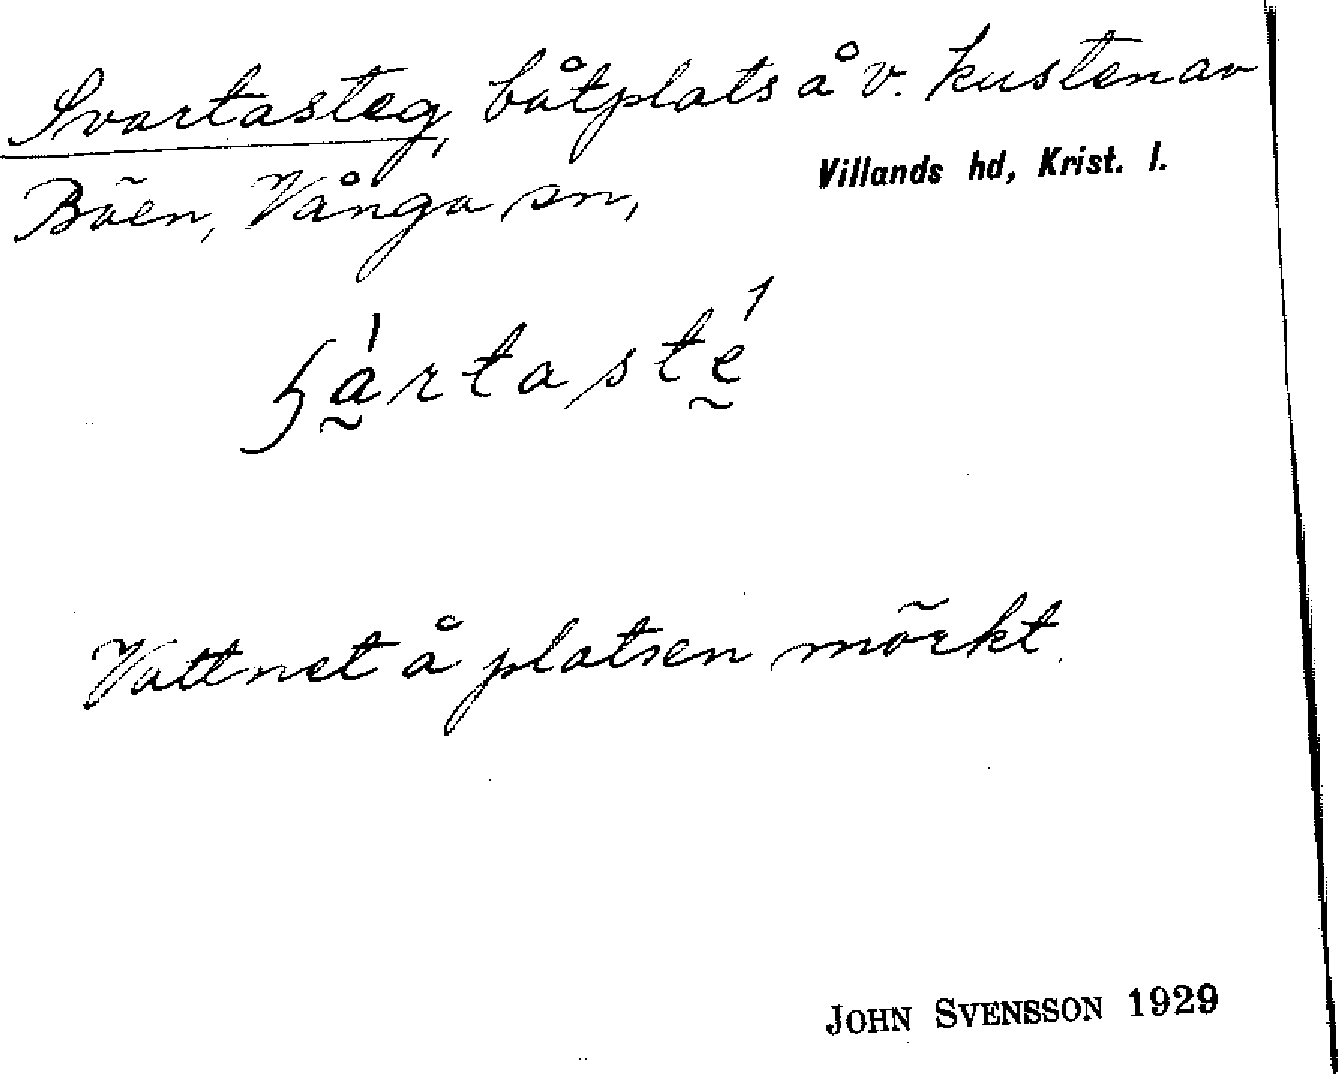 Svartasteg, båtplats å v. kusten av
Bäen, Vånga sn,
Villands hd, Krist. l.
Vattnet å platsen mörkt.
JOHN SVENSSON 1929